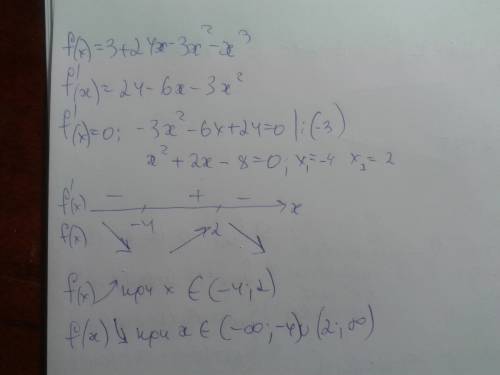 f(x)=3+24x-3x²-x³
f'(x)=24-6x-3x²
f'(x)=0; -3x²-6x+24=0 |:(-3)
x²+2x-8=0; x₁=-4 x₂=2
f'(x) - + - x
f(x) -4 ↘ ↗ 2 ↘
f(x) ↗ при x ∈ (-4; 2)
f(x) ↘ при x ∈ (-∞; -4)∪(2; ∞)